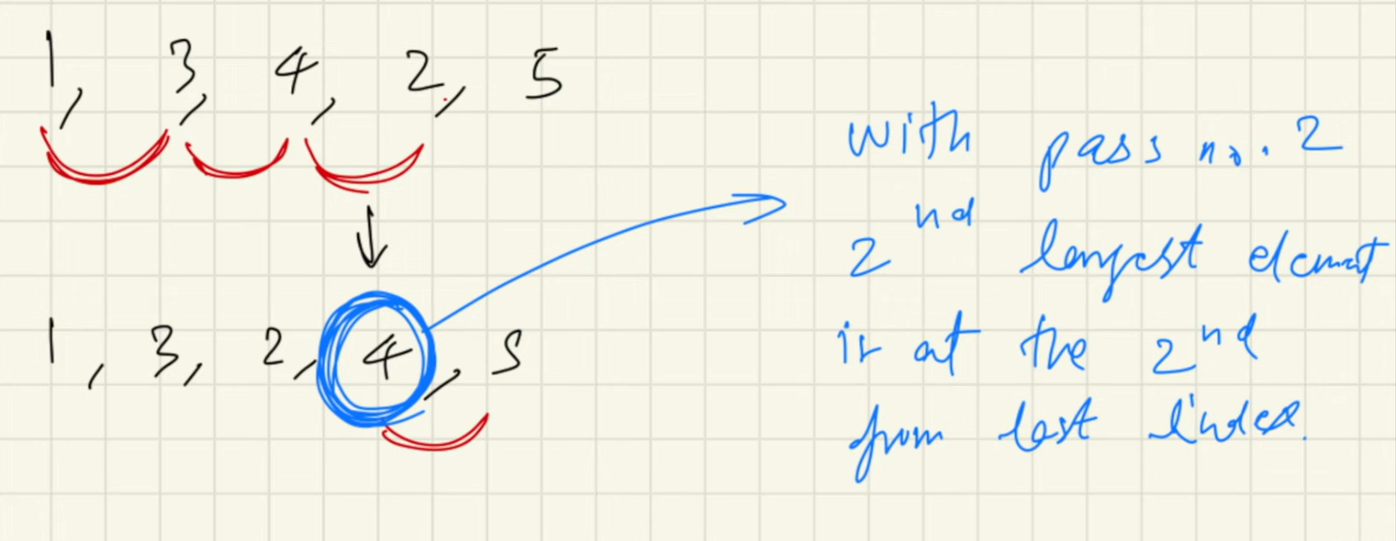 1, 3, 4, 2, 5
1, 3, 2, 4, 5
with pass no. 2
2nd largest element
is at the 2nd
from last index.